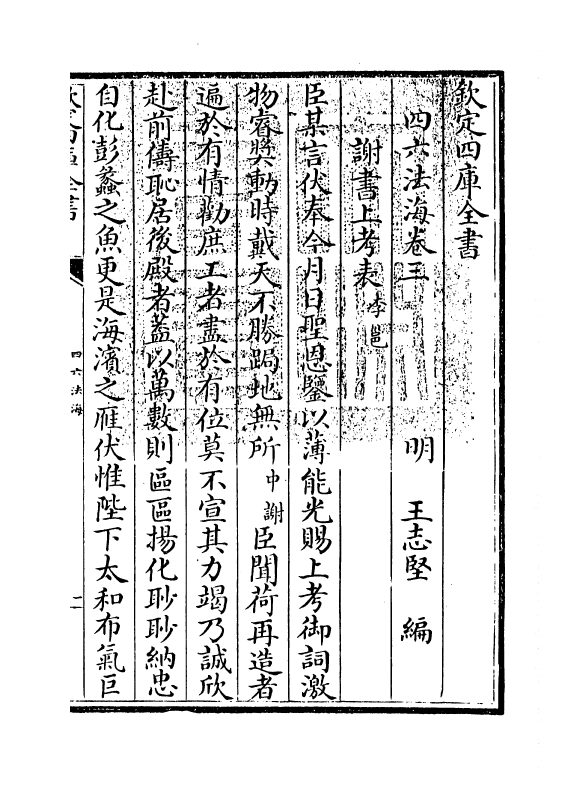 欽定四庫全書
四六法海卷三 明 王志堅 編
謝書上考表 李邕
臣某言伏奉今月日聖恩鑒以薄能光賜上考御詞激
物睿奬動時戴天不勝跼地無所中謝臣聞荷再造者
遍於有情勸庶工者盡於有位莫不宣其力竭乃誠欣
赴前儔恥居後殿者蓋以萬數則區區揚化眇眇納忠
自化彭蠡之魚更是海濱之雁伏惟陛下太和布氣巨
欽定四庫全書
四六法海